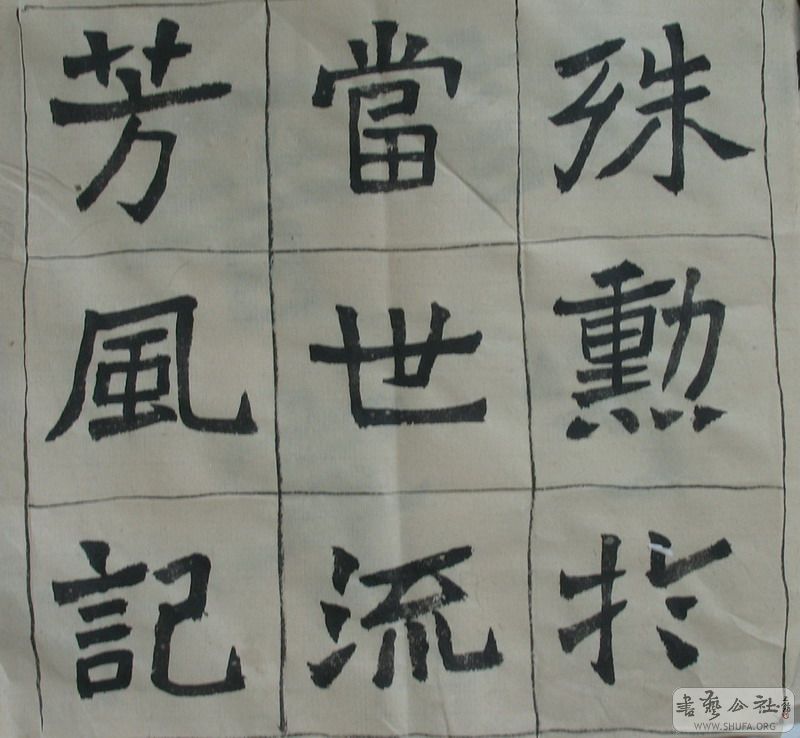 殊勳於
當世流
芳風記
書藝公社
WWW.SHUFA.ORG